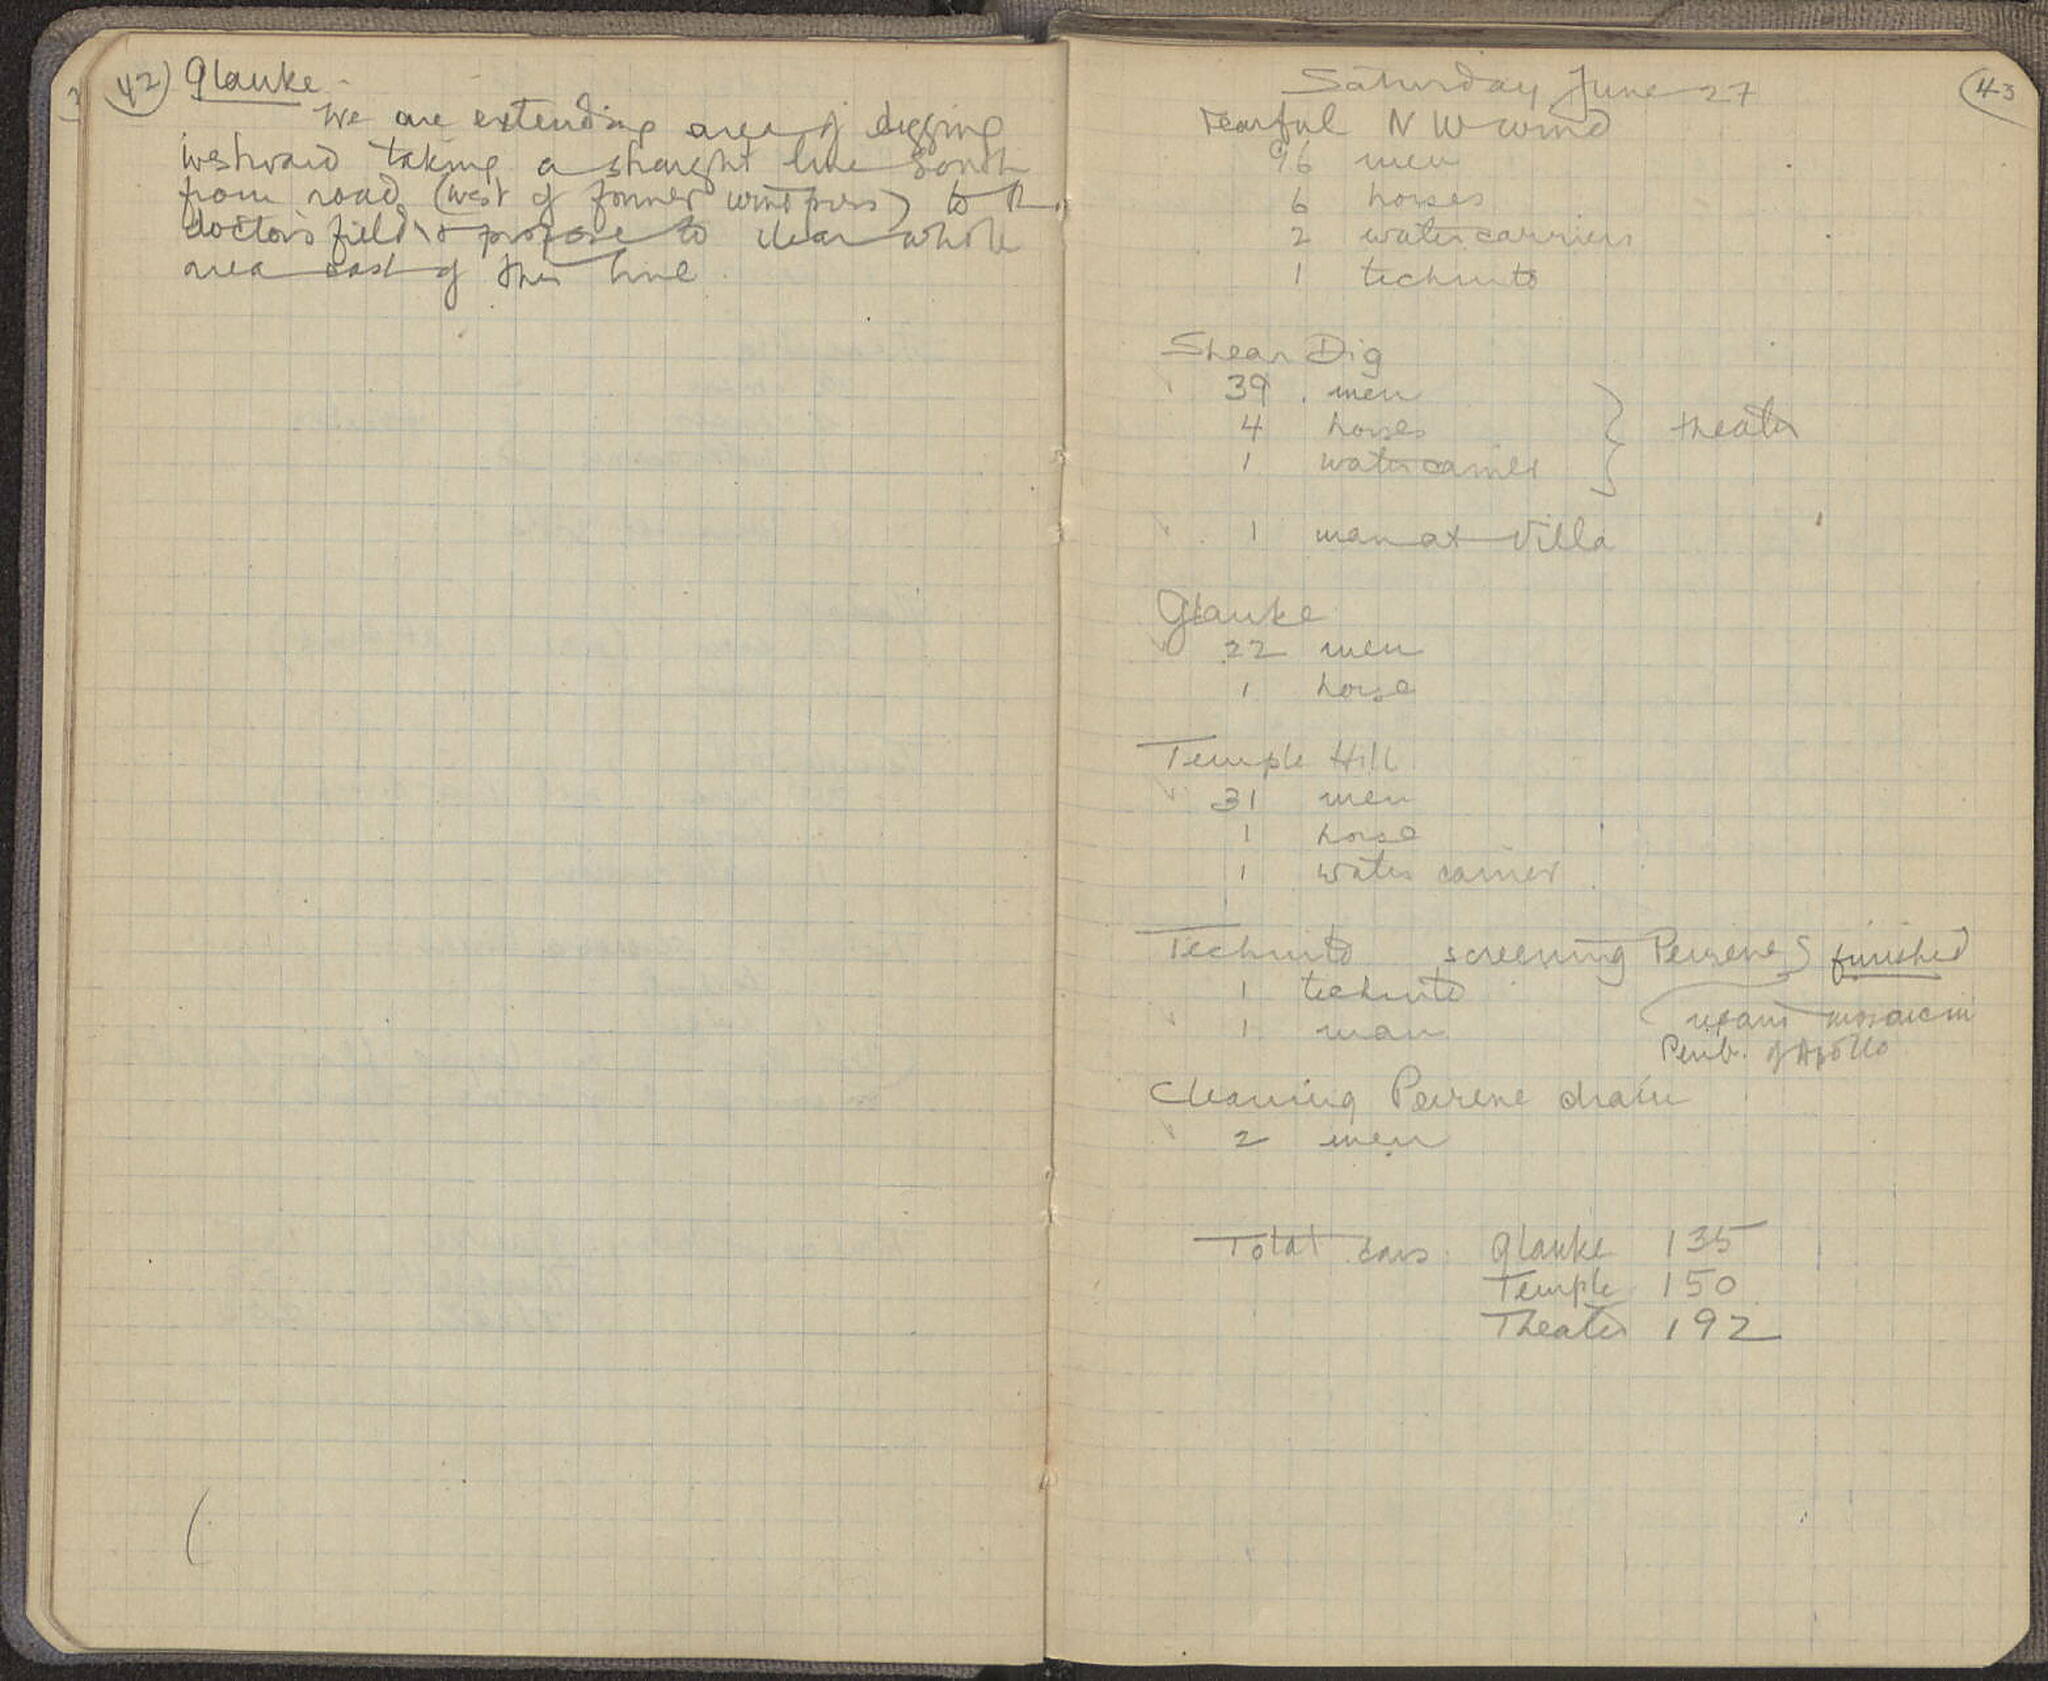 42) Glauke -
We are extending area of digging
westward taking a straight line South
from road (west of former wine press) to the
doctor's field & propose to clear whole
area east of this line.
43
Saturday June 27
Fearful N W wind
96 men
6 horses
2 water carriers
1 technito
Shear Dig
39 men
4 horses } theater
1 water carrier
1 man at Villa
Glauke
22 men
1 horse
Temple Hill
31 men
1 horse
1 water carrier
Technito screening Peirene } finished
1 technito
1 man
repairs mosaic in
Perib. of Apollo
Cleaning Peirene drain
2 men
Total cars Glauke 135
Temple 150
Theater 192